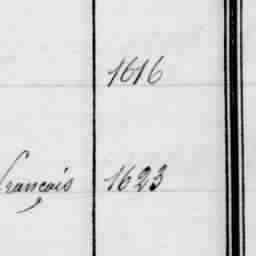 1616
français 1623